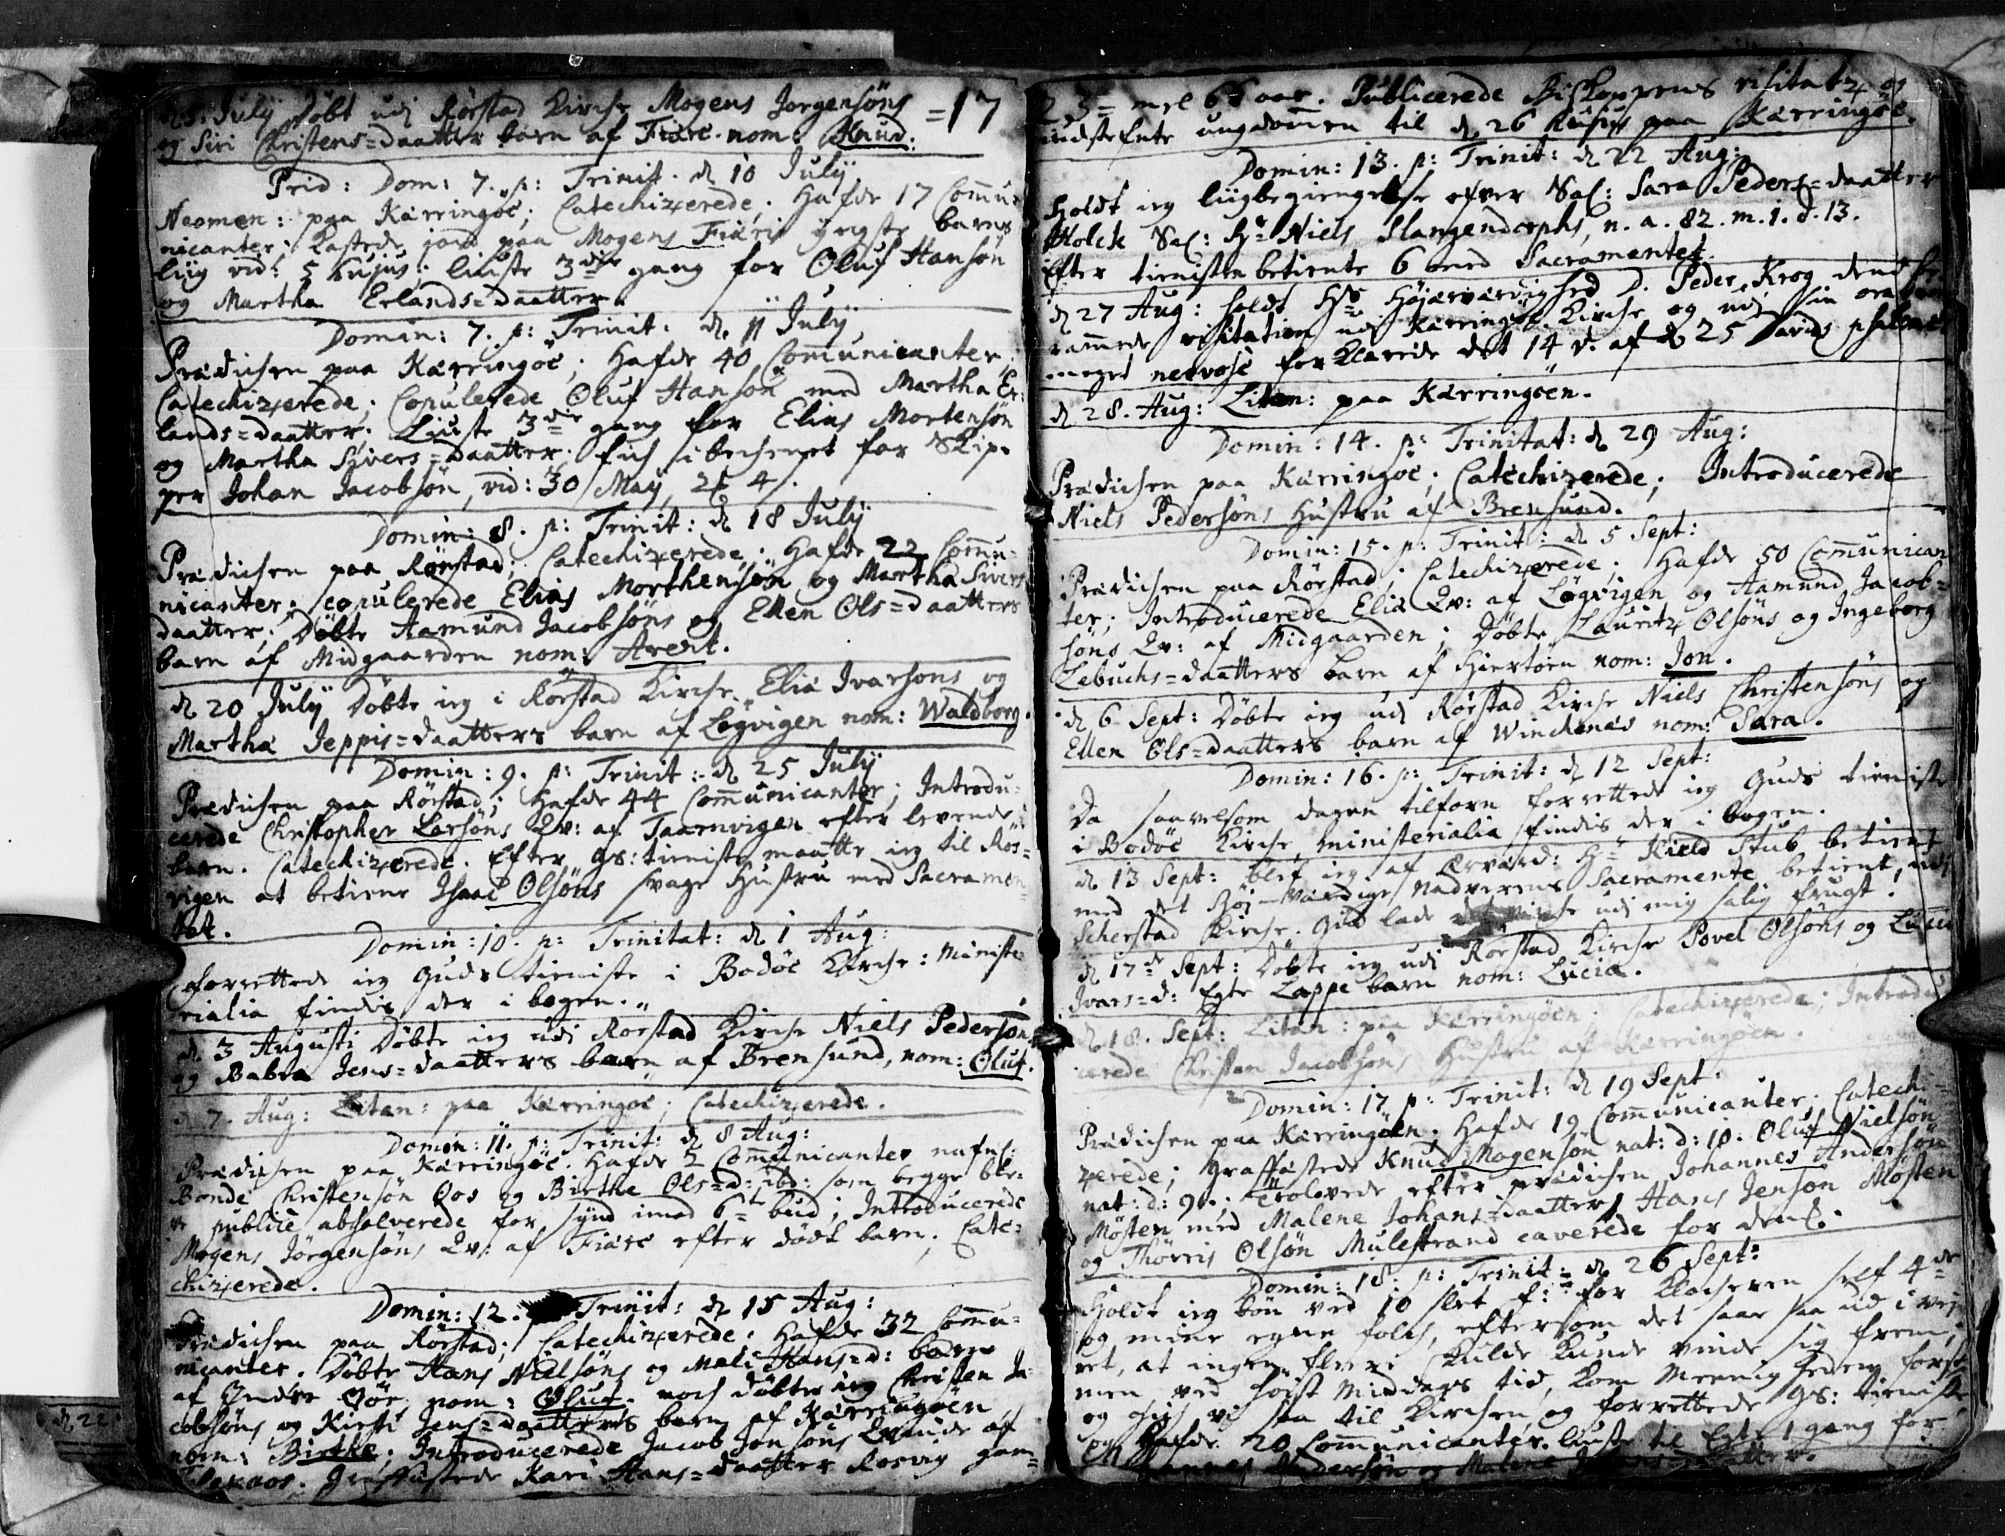 d. 5. July Döbt udj Rörstad Kirche Mogens Jorgensöns = 17
og Siri Christens=daatter barn af Fiære. nom: Knud.
Prid: Dom: 7. p: Trinit. d 10 July.
Neomen: paa Kærringöe; Catechizerede; Hafde 17 Commu-
nicanter; Kastede jord paa Mogens Fiæris yngste barns
liig vid: 5 hujus; liuste 3die gang for Oluf Hansön
og Martha Erlands=daatter.
Domin: 7. p: Trinit. d. 11 July
Prædichen paa Kærringöe; Hafde 40 Communicanter;
Catechizerede; Copulerede Oluf Hansön med Martha Er:
lands=daatter; Liuste 3die gang for Elias Mortensön
og Martha Sivers=daatter; fich for Skip-
per Johan Jacobsön, vid: 30 May, 4.
Domin: 8. p: Trinit: d 18 July
Prædichen paa Rörstad; Catechizerede; Hafde 22 Commu-
nicanter; copulerede Elias Morthensön og Martha Sivers
daatter; Döbte Aamund Jacobsöns og Ellen Ols=daatters
barn af Midgaarden nom: Arent.
d 20 July Döbte ieg i Rörstad Kirche Eliæ Ivarsons og
Martha Jeppis=daatters barn af Lögvigen nom: Waldborg.
Domin: 9. p: Trinit: d 25 July
Prædichen paa Rörstad; Hafde 44 Communicanter; Introdu-
cerede Christopher Larsöns Qv: af Taarnvigen efter levende
barn. Catechizerede. Efter gs: tieniste maatte ieg til Ros=
vigen at betiene Isaac Olsöns svage Hustru med Sacramen-
tet.
Domin: 10. p: Trinitat: d 1 Aug:
forrettede ieg Guds tieniste i Bodöe Kirche: Ministe-
rialia findis der i bogen.
d. 3 Augusti Döbte ieg udi Rörstad Kirche Niels Pedersön
og Babra Jens=daatters barn af Brensund, nom: Oluf.
d 7. Aug: Litan: paa Kærringöe; Catechizerede.
Domin: 11. p: Trinit: d 8 Aug:
Prædichen paa Kærringöe. Hafde 2 Communicanter nafnl:
Bonde Christensön Oos og Birthe Ols=d: ibd: som begge ble-
ve publicè absolverede for synd imod 6te bud; Introducerede
Mogens Jörgensöns Qv: af Fiære efter dödt barn. Cate-
chizerede.
Domin: 12. Trinit: d 15 Aug:
Prædichen paa Rörstad; Catechizerede; Hafde 32 Commu-
nicanter. Döbte Hans Nielsöns og Mali Hans=d: barn
af Indre Göe, nom: Oluf. noch döbte ieg Christen Ja-
cobsöns og Kirsti Jens=daatters barn af Kærringöen
nom: Birthe; Introducerede Jacob Jonsöns Qvinde af
Græffæstede Kari Hans=daatter Rosvig gam=
23= mel 6 aar. Publicerede Biskoppens visitatz og
indstefnte ungdommen til d. 26 hujus paa Kærringöe.
Domin: 13. p: Trinit: d 22 Aug:
Holdt ieg liigbegiengelse ofver Sal: Sara Peders=daatter
Holck Sal: Hr Niels Slangendorphs, n. a. 82. m. 1. d. 13.
Efter tienisten betiente 6 med Sacramentet.
d 27 Aug: holdt Hs Höjærværdighed D. Peder Krog dend
rammede visitation udi Kærringöe Kirche og udj sin oration
meget nervosè forklarede det 14 v. af d 25 Davids psalme.
d 28. Aug: Litan: paa Kærringöen.
Domin: 14. p: Trinitat: d 29 Aug:
Prædichen paa Kærringöe; Catechizerede; Introducerede
Niels Pedersöns Hustru af Brensund.
Domin: 15. p: Trinit: d 5 Sept:
Prædichen paa Rörstad; Catechizerede; Hafde 50 Communican
ter; Introducerede Eliæ Qv: af Lögvigen og Aamund Jacob=
söns Qv: af Midgaarden; Döbte Lauritz Olsöns og Ingeborg
Lebuchs=daatters barn af Hiertöen nom: Jon.
d 6 Sept: Döbte ieg udj Rörstad Kirche Niels Christensöns og
Ellen Ols=daatters barn af Winckenes nom: Sara.
Domin: 16. p: Trinit: d 12 Sept:
Da saavelsom dagen tilforn forrettede ieg Guds tieniste
i Bodöe Kirche, ministerialia findis der i bogen.
d 13 Sept: blef ieg af Ærværd: Hr Kield Stub betient
med det Höj-Værdige Nadverens Sacramente betient, udj
Scherstad Kirche. Gud lade udi mig salig frugt.
d 17de Sept: Döbte ieg udj Rörstad Kirche Povel Olsöns og
Ivars=d: Egte Lappe barn nom: Lucia.
d 18. Sept: Litan: paa Kærringöen; Catechizerede; Introdu
cerede Christen Jacobsöns Hustru af Kærringöen.
Domin: 17 p: Trinit: d 19 Sept:
Prædichen paa Kærringöen; Hafde 19 Communicanter. Catechi-
zerede; Græffæstede Knud Mogensön nat: d: 10. Oluf Nielsön
nat: d: 9; Trolovede efter prædichen Johannes Andersön
Mösten med Malene Johans=daatter, Hans Jensön Mösten
og Thorris Olsön Mulestrand caverede for dem.
Domin: 18. p: Trinit: d 26 Sept:
Holdt ieg bön ved 10 slet for Klocheren self 4de
og mine egne folch, eftersom det saae saa ud i vej-
ret, at ingen fleere skulde kunde vinde sig frem;
men ved höist Middags tid, kom
og gich vi saa til Kirchen og forrettede gs: tieniste,
og hafde 20 Communicanter. liuste til Egte 1 gang for
Johannes Andersön og Malene Johans=daatter.